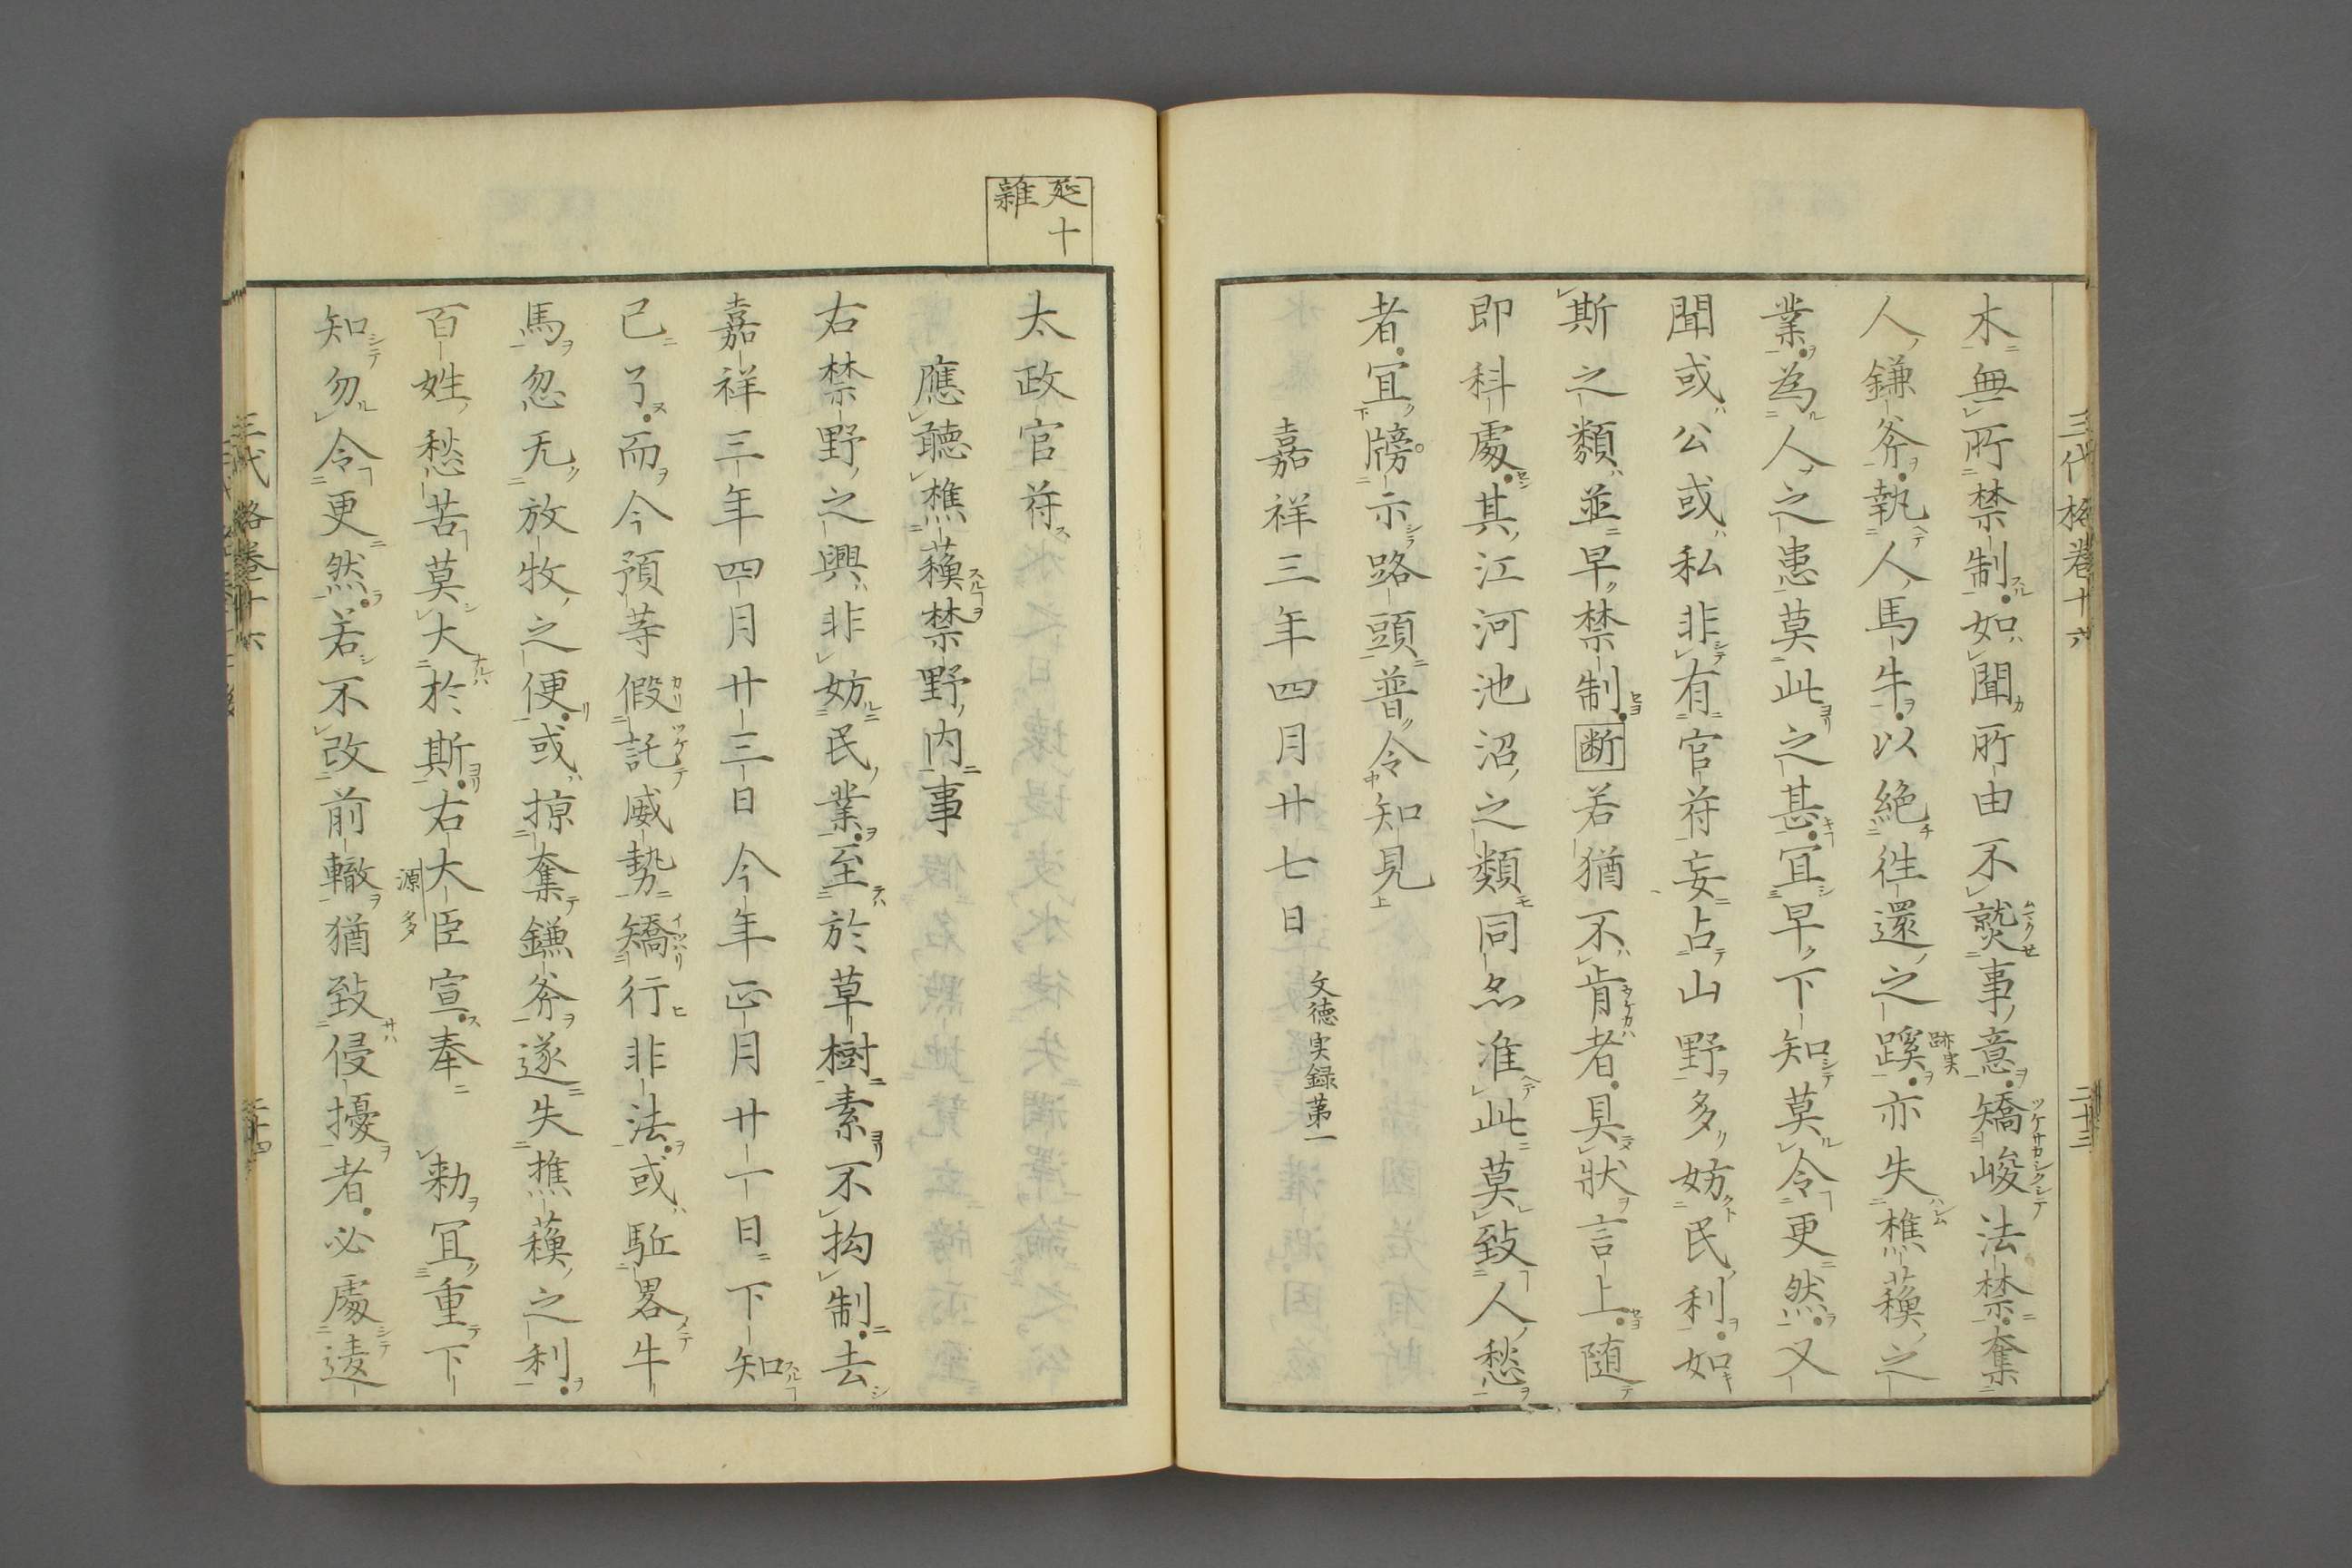 三代格卷十六
二十三
木無所禁制如聞所由不熟事意矯峻法禁奪
人鎌斧執人馬牛以絶往還之蹊亦失樵蘓之
業為人之患莫此之甚宜早下知莫令更然又
聞或公或私非有官符妄占山野多妨民利如
斯之類並早禁制断若猶不肯者具狀言上随
即科處其江河池沼之類同亦准此莫致人愁
者宜牓示路頭普令知見
嘉祥三年四月廿七日 文徳実録第一
延十
雜
太政官符
應聴樵蘓禁野内事
右禁野之興非妨民業至於草樹素不拘制去
嘉祥三年四月廿三日今年正月廿一日下知
已了而今預等假託威勢矯行非法或駈畧牛
馬忽无放牧之便或掠奪鎌斧遂失樵蘓之利
百姓愁苦莫大於斯右大臣宣奉 勅宜重下
源多
知勿令更然若不改前轍猶致侵擾者必處違
三代格卷十六
二十四